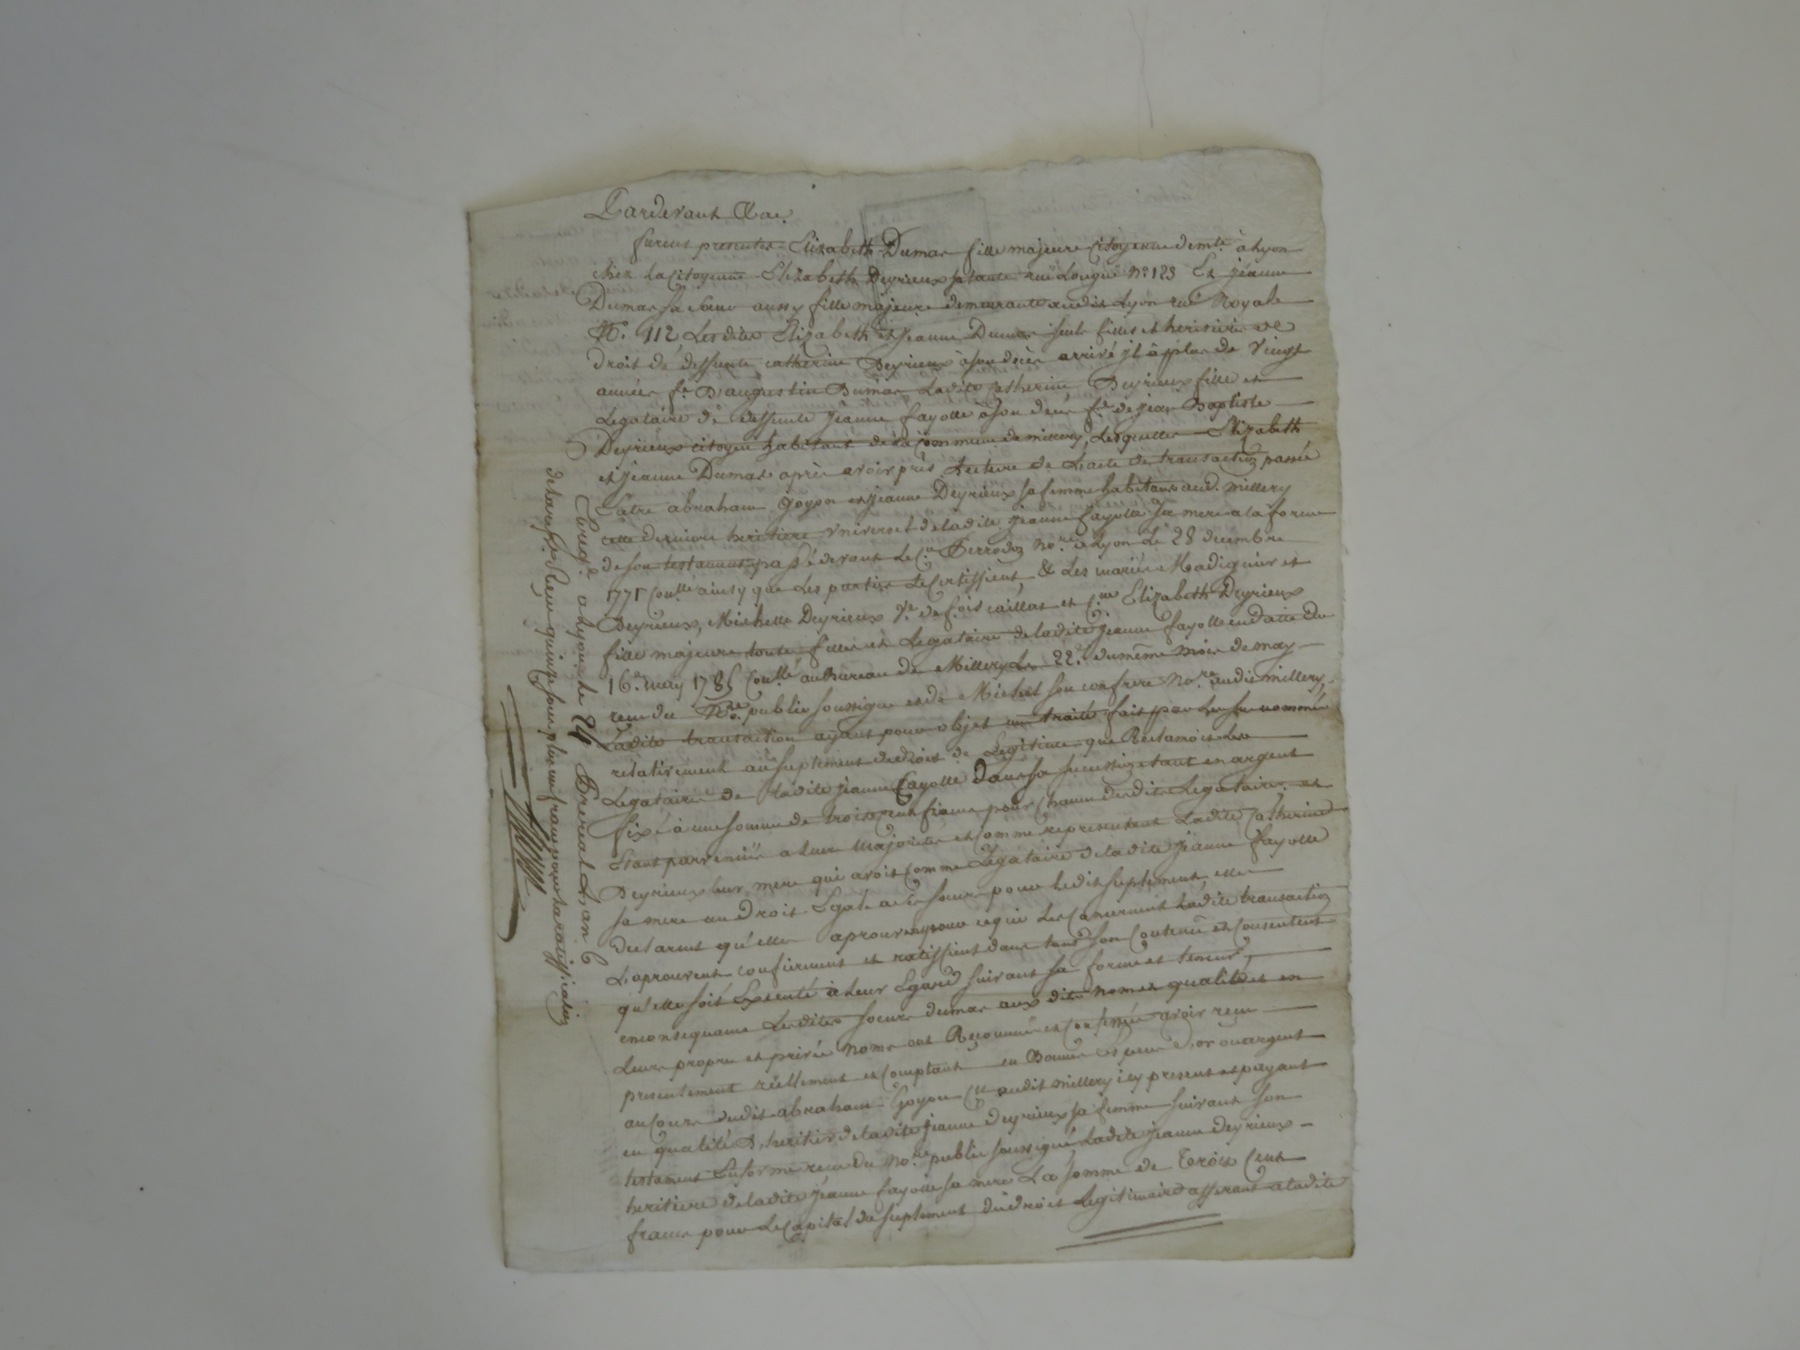 Pardevant &a.
furent presentes Elizabeth Dumas fille majeure Citoyenne demte. à Lyon
chez La Citoyenne Elizabeth Deyrieux sa tante rue Longue No 123 Et jeanne
Dumas sa soeur aussy fille majeure demeurante audit Lyon rue Royale
No. 112 Lesdites Elizabeth et jeanne Dumas seule filles et heritiere de
droit de deffunte catherine Deyrieux à son décès arrivé il à plus de Vingt
années fe. D'augustin Dumas, Ladite Catherine Deyrieux fille et
Legataire de deffunte jeanne fayolle à son décès fe. de jean Baptiste
Deyrieux citoyen habitant de la commune de millery, Lesquelles Elizabeth
et jeanne Dumas après avoir pris Lecture de L'acte de transaction passé
Entre abraham Goyon et jeanne Deyrieux sa femme habitans aud. millery
cette derniere heritiere Universel de ladite jeanne fayolle sa mere a la forme
de son testament passé devant Le Cn. Perrodon Nore. à Lyon Le 28 decembre
1771 Conllé ainsy que Les parties Le Certiffient, & Les mariés Madignier et
Deyrieux, Michelle Deyrieux Ve. de fois caillat et Cne. Elizabeth Deyrieux
fille majeure toute filles et Legataire de ladite jeanne fayolle en date du
16e. may 1785 Conllé au Bureau de Millery Le 22e. du même mois de may
recu du Nre. public soussigné et de Michel son confrere Nore. audit millery,
Ladite transaction ayant pour objet un traité fait par Les sus nommés
relativement au suplement de droit de Legitime que Reclamoit Les
Legataires de ladite jeanne fayolle dans sa succession etant en argent
fixé à une somme de trois cent francs pour chacune desdites Legataires et
Etant parvenües a leurs majorités et comme representant Ladite Catherine
Deyrieux leur mere qui avoit comme Legataire de ladite jeanne fayolle
sa mere un droit Egale a ses soeurs pour ledit suplement, elles
declarent qu'elles aprouvent pour ce qui Les Concernent Ladite transaction
L'aprouvent confirment et ratiffient dans tout son Contenu et Consentent
qu'elle soit Executé à leur Egard suivant sa forme et teneur,
en consequence Lesdites soeurs dumas aux dits noms et qualités et en
Leurs propres et privés noms ont Reconnues et Confessées avoir reçu
presentement réellement et comptant en Bonnes Especes d'or ou argent
au Cours dudit abraham Goyon Cn audit millery icy present et payant
en qualité d'heritier de ladite jeanne Deyrieux sa femme suivant son
testament En forme recu du Nore. public soussigné, Ladite jeanne Deyrieux
heritiere de ladite jeanne fayolle sa mere La somme de Trois Cent
francs pour Le Capital du suplement du droit Legitimaire afferant a ladite
Enregé. a Lyon Le 24 Prereal L'an 6
de la rep. Recu quinze sous plus un franc pour la ratiffication